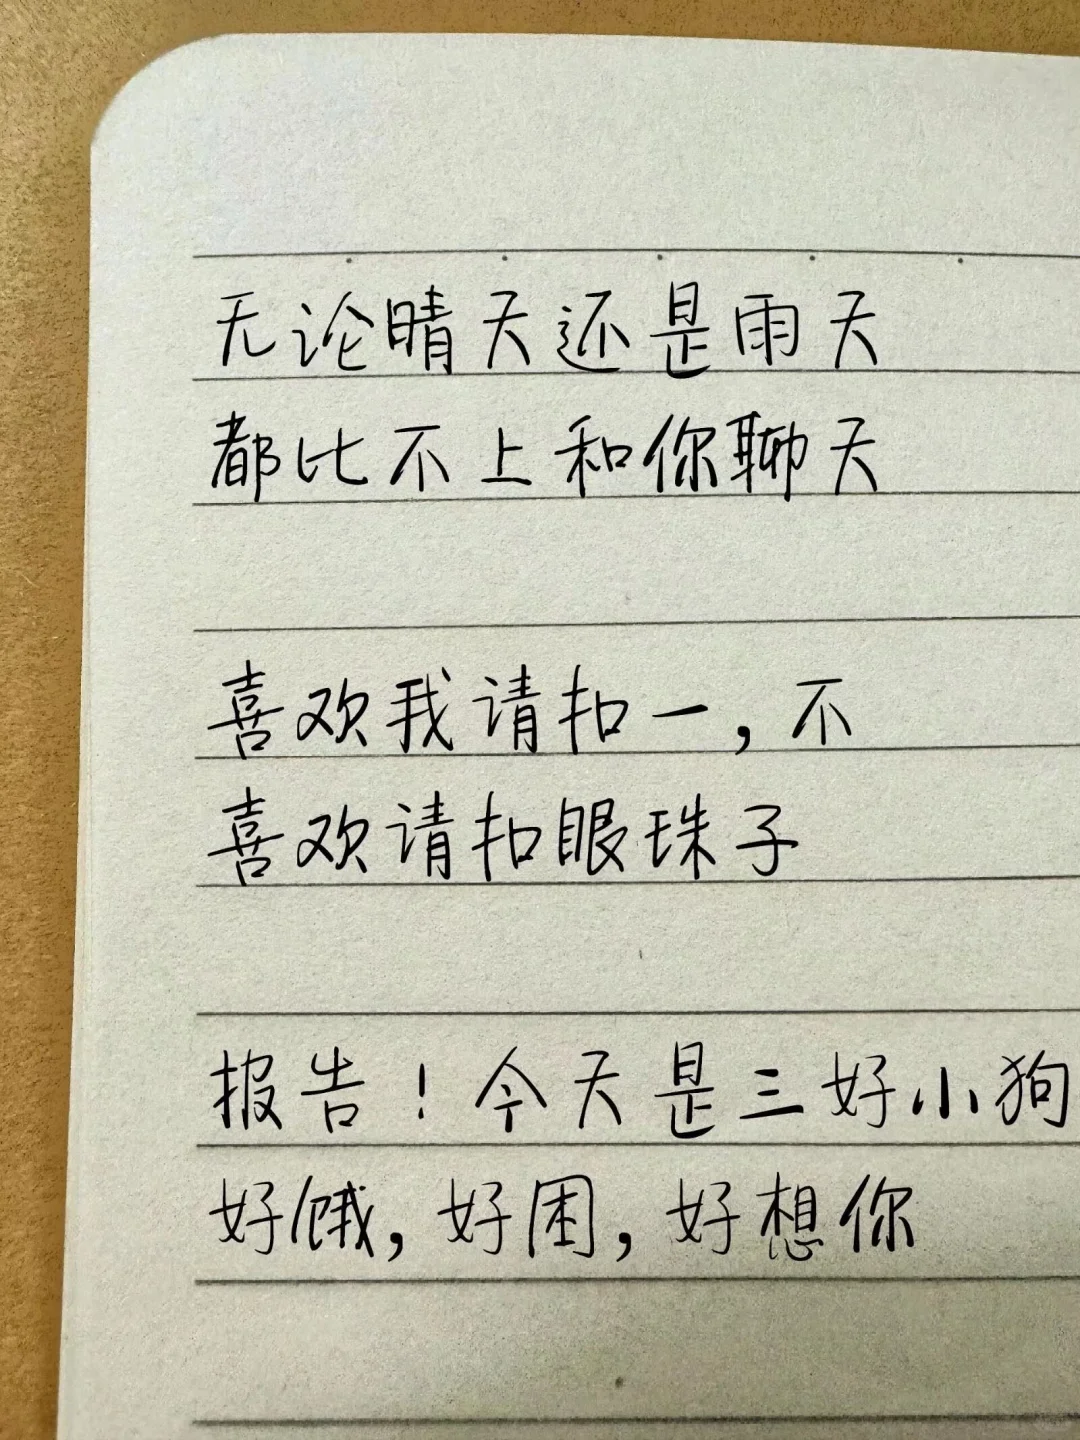 无论晴天还是雨天
都比不上和你聊天
喜欢我请扣一,不
喜欢请扣眼珠子
报告!今天是三好小狗
好饿,好困,好想你